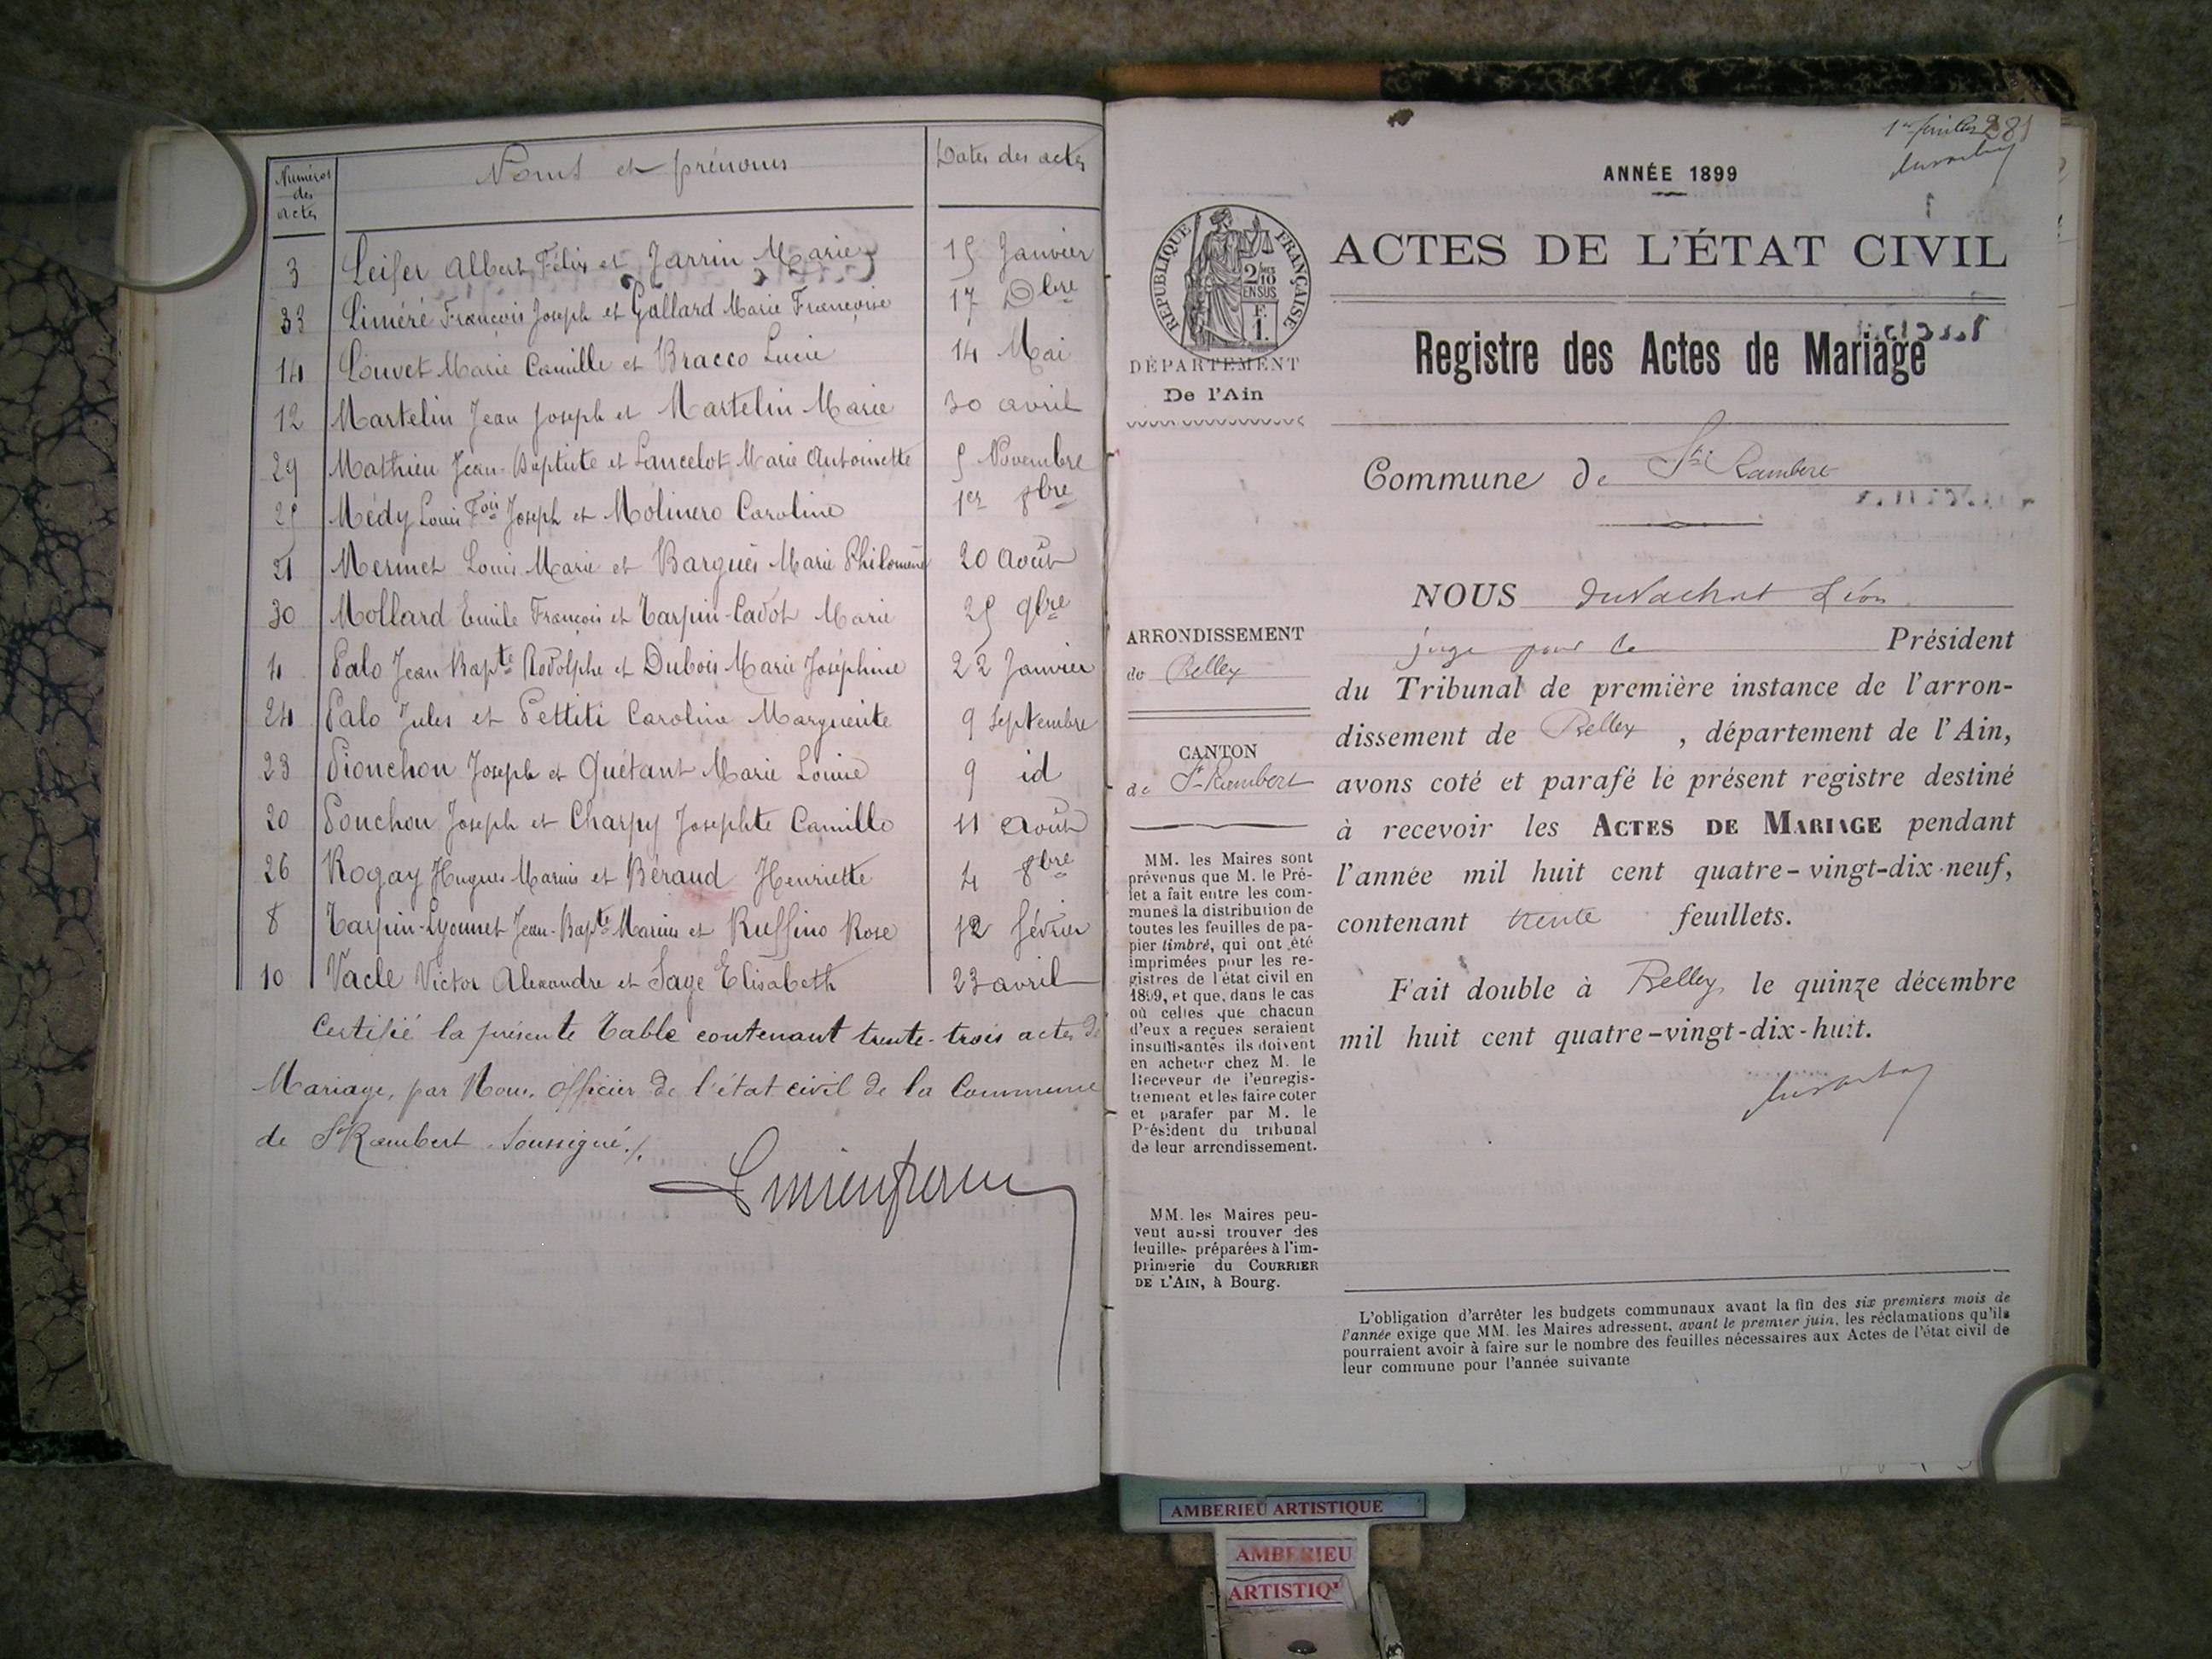 Numéros des actes
Noms et prénoms
Dates des actes
3 Leifer Albert Félix et Jarrin Marie 15 Janvier
33 Liméré François Joseph et Gallard Marie Françoise 17 Dbre
14 Louvet Marie Camille et Bracco Lucie 14 Mai
12 Martelin Jean Joseph et Martelin Marie 30 avril
29 Mathieu Jean-Baptiste et Lancelot Marie Antoinette 5 Novembre
25 Médy Louis Fois Joseph et Molinero Caroline 1er 8bre
21 Mermet Louis Marie et Barquès Marie Philomène 20 Août
30 Mollard Emile François et Tarpin-Cadot Marie 25 9bre
4 Palo Jean Bapte Rodolphe et Dubois Marie Joséphine 22 Janvier
24 Palo Jules et Pettiti Caroline Marguerite 9 Septembre
23 Pionchon Joseph et Quétant Marie Louise 9 id
20 Ponchon Joseph et Charpy Josephte Camille 11 Août
26 Rogay Hugues Marius et Béraud Henriette 4 8bre
8 Tarpin-Lyonnet Jean-Bapte Marius et Ruffino Rose 12 février
10 Vacle Victor Alexandre et Sage Elisabeth 23 avril
Certifié la présente Table contenant trente-trois actes de
Mariage, par Nous, Officier de l'état civil de la Commune
de St Rambert Soussigné./.
ANNÉE 1899
RÉPUBLIQUE FRANÇAISE
2/10 EN SUS
F. 1.
DÉPARTEMENT
De l'Ain
ACTES DE L'ÉTAT CIVIL
Registre des Actes de Mariage
Commune de St Rambert
ARRONDISSEMENT
de Belley
CANTON
de St-Rambert
MM. les Maires sont
prévenus que M. le Pré-
fet a fait entre les com-
munes la distribution de
toutes les feuilles de pa-
pier timbré, qui ont été
imprimées pour les re-
gistres de l'état civil en
1899, et que, dans le cas
où celles que chacun
d'eux a reçues seraient
insuffisantes ils doivent
en acheter chez M. le
Receveur de l'enregis-
trement et les faire coter
et parafer par M. le
Président du tribunal
de leur arrondissement.
MM. les Maires peu-
vent aussi trouver des
feuilles préparées à l'im-
primerie du COURRIER
DE L'AIN, à Bourg.
NOUS Duvachat Léon
juge pour le Président
du Tribunal de première instance de l'arron-
dissement de Belley, département de l'Ain,
avons coté et parafé le présent registre destiné
à recevoir les ACTES DE MARIAGE pendant
l'année mil huit cent quatre-vingt-dix-neuf,
contenant trente feuillets.
Fait double à Belley, le quinze décembre
mil huit cent quatre-vingt-dix-huit.
L'obligation d'arrêter les budgets communaux avant la fin des six premiers mois de
l'année exige que MM. les Maires adressent, avant le premier juin, les réclamations qu'ils
pourraient avoir à faire sur le nombre des feuilles nécessaires aux Actes de l'état civil de
leur commune pour l'année suivante
AMBERIEU ARTISTIQUE
AMBERIEU
ARTISTIQ